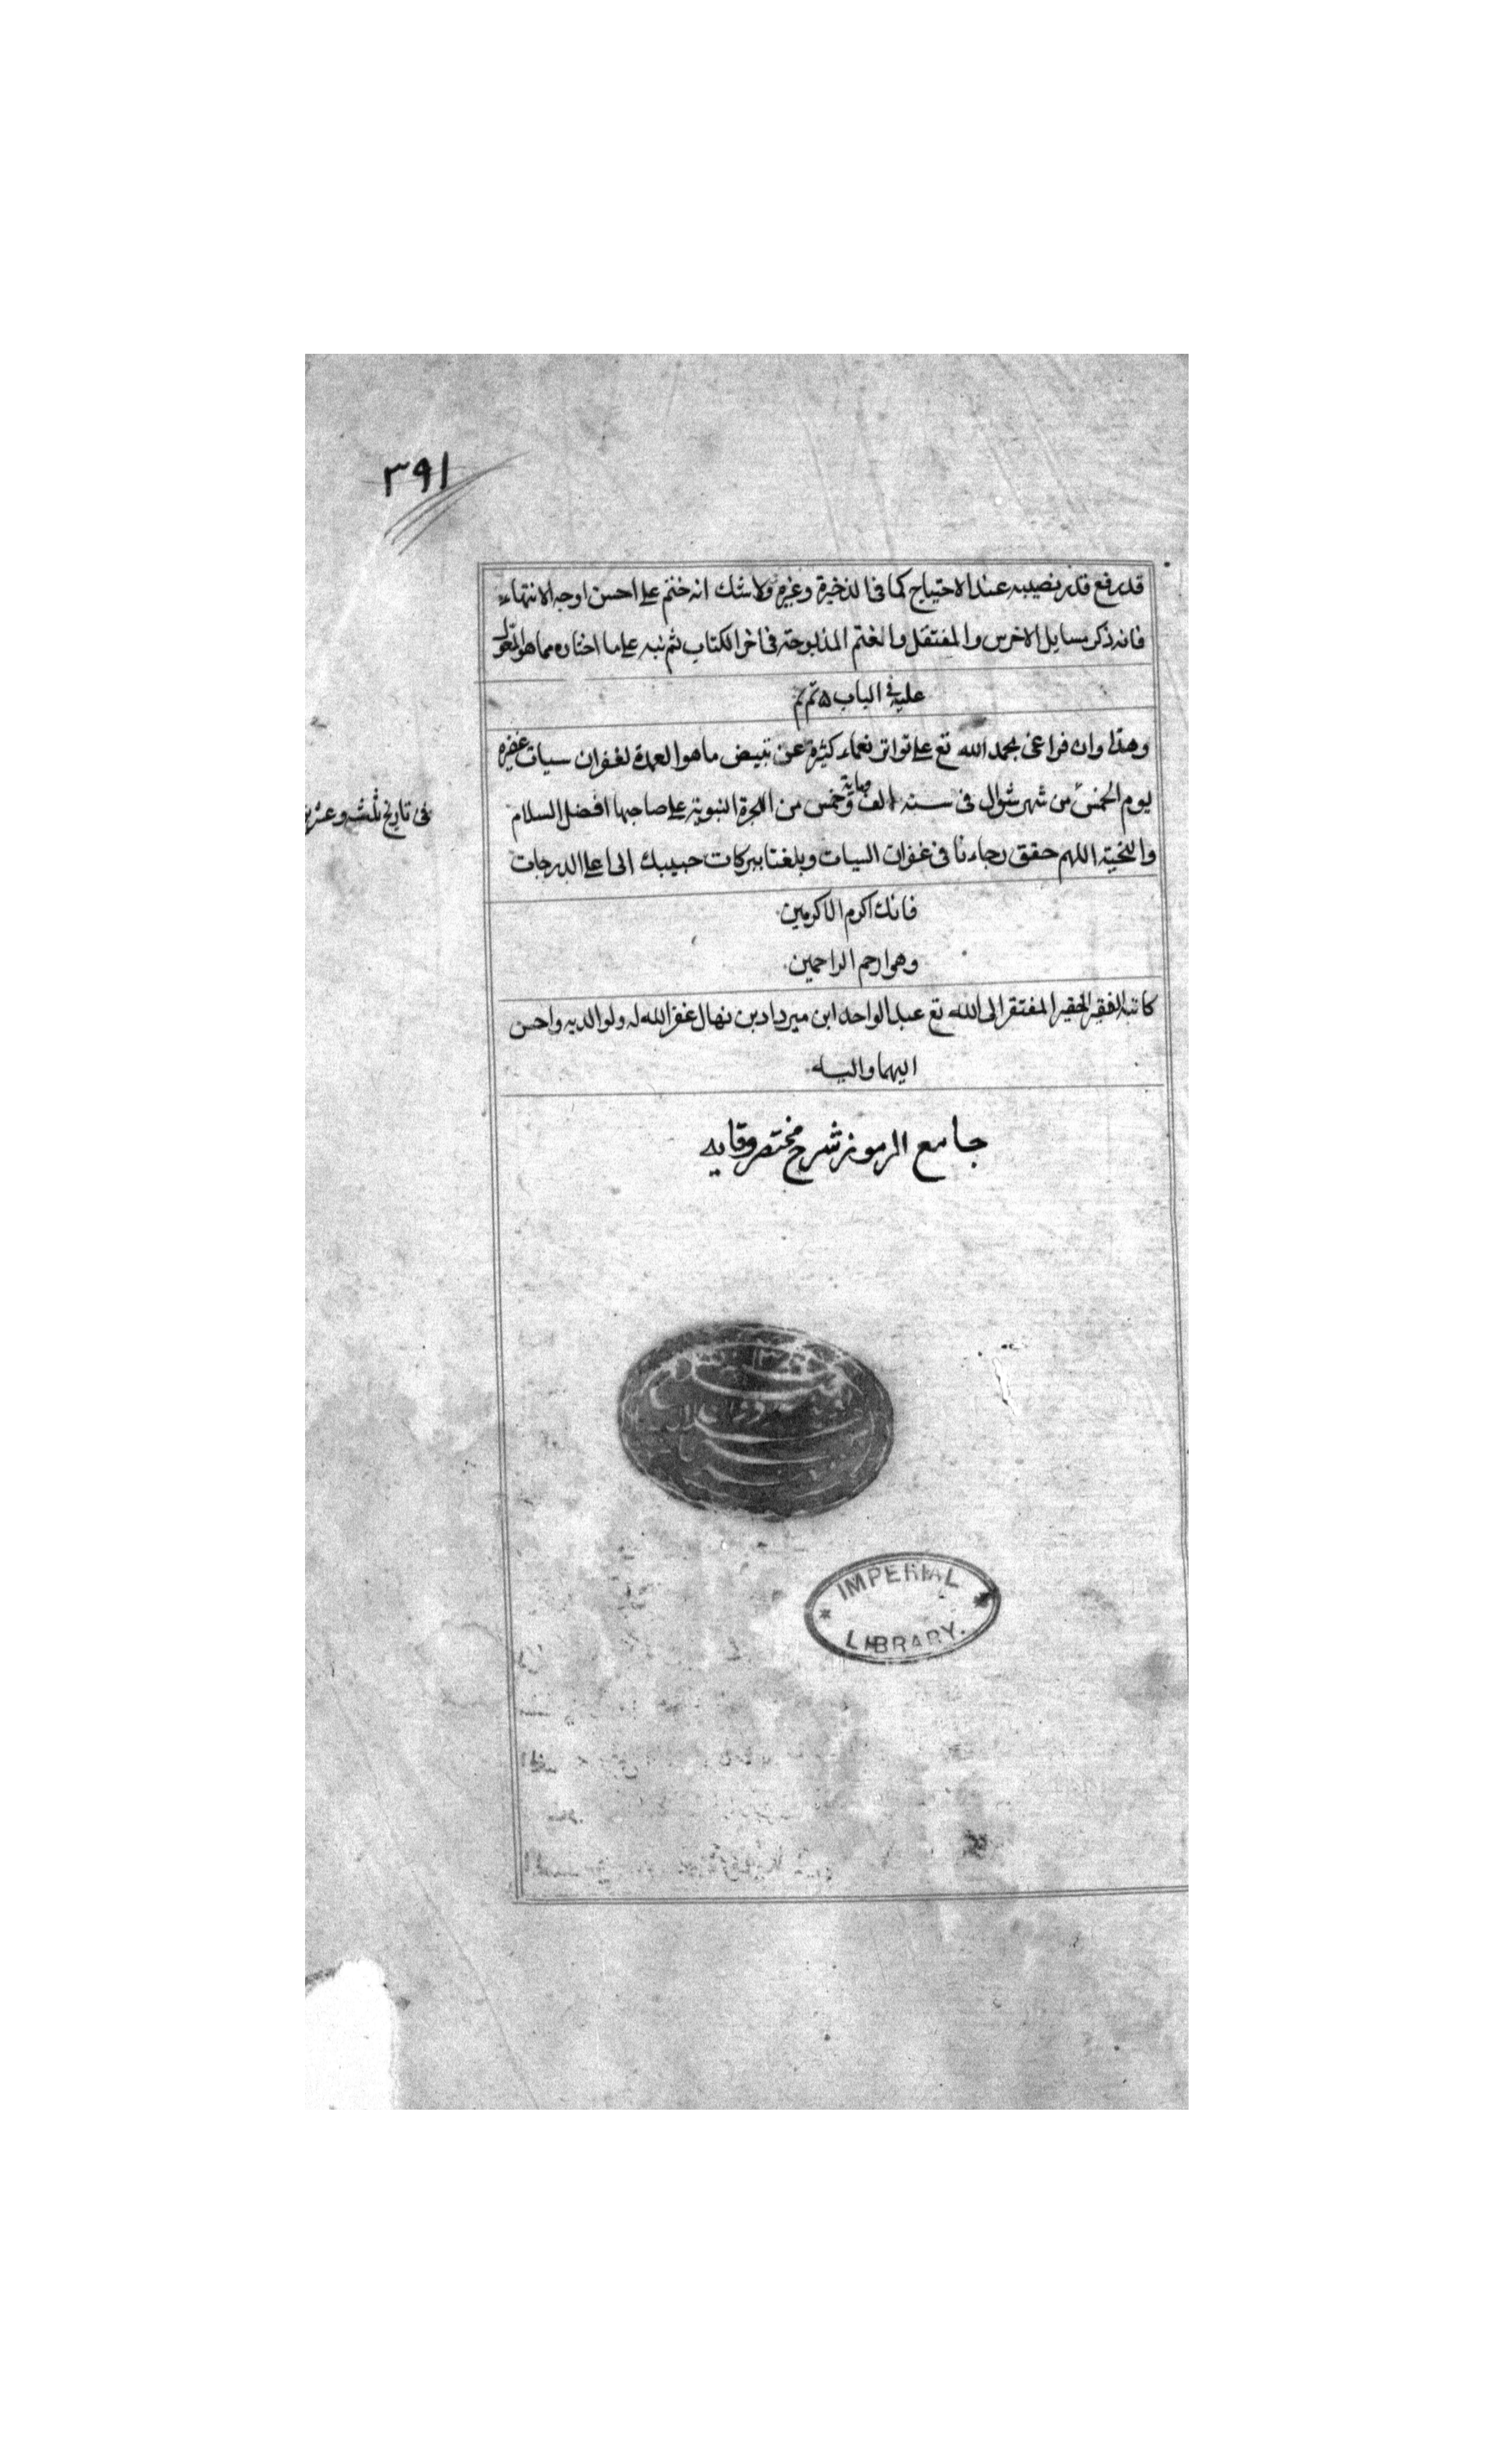 ٣٩١
قدر رفع قدر نصيبه عند الاحتياج كما في الذخيرة وغيره ولا شك انه ختم على احسن اوجه الانتهاء
فانه ذكر مسايل الاخرس والمفتقل والغنم المذبوحة في اخر الكتاب ثم نبه على ما اختاره مما هو المعول
عليه في الباب ٥ تم تم
وهذا وان فراغى بحمد الله تع على تواتر نعماء كثيرة عن تبيض ما هو العمدة لغفران سيات غفيره
يوم الخمس من شهر شوال فى سنه الف وماية وخمس من الهجرة النبوية على صاحبها افضل السلام
فى تاريخ ثلثه وعشرين
والتحية اللهم حقق رجاءنا فى غفران السيات وبلغنا ببركات حبيبك الى اعلا الدرجات
فانك اكرم الاكرمين
وهو ارحم الراحمين
كاتبه الفقير الحقير المفتقر الى الله تع عبد الواحد ابن ميرداد بن نهال غفر الله له ولوالديه واحسن
اليهما واليه
جامع الرموز شرح مختصر وقايه
IMPERIAL
LIBRARY.